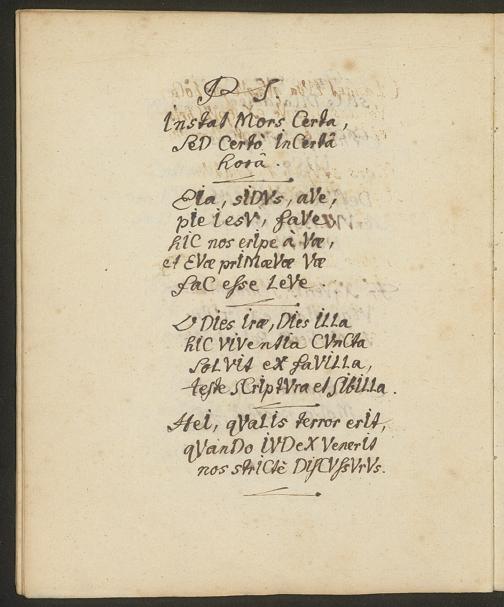 P S.
Instat Mors Certa,
SeD Certò inCertâ
horâ.
Eia, siDVs, aVe,
pie IesV, faVe,
hIC nos erIpe à Væ,
et EVæ priMæVæ Væ
faC esse LeVe.
O Dies Iræ, Dies ILLa
hIC VIVentia CVnCta
soLVit eX faVILLa,
teste sCriptVra et SibiLLa.
Hei, qVaLis terror erit,
qVanDo IVDeX Venerit
nos striCtè DisCVssVrVs.